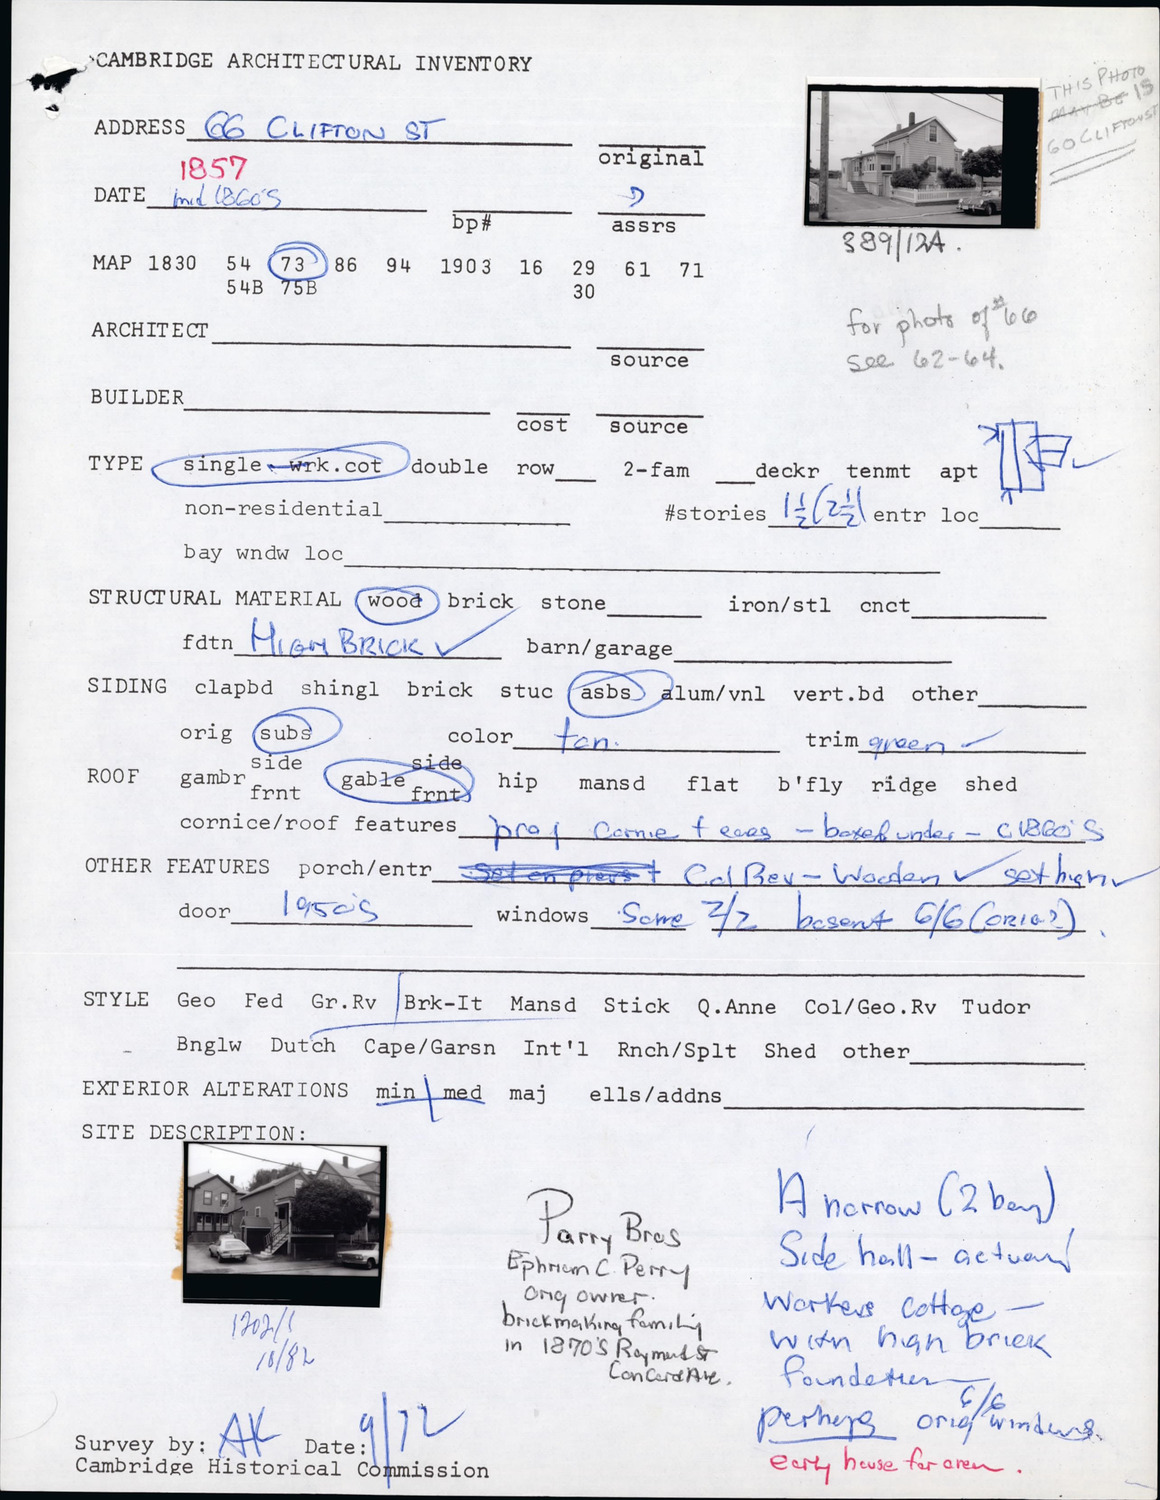 CAMBRIDGE ARCHITECTURAL INVENTORY
THIS PHOTO
MAY BE IS
60 CLIFTON ST
ADDRESS 66 CLIFTON ST
original
1857
DATE mid 1860'S
bp# assrs
389/12A.
MAP 1830 54 73 86 94 1903 16 29 61 71
54B 75B 30
for photo of #66
see 62-64.
ARCHITECT
source
BUILDER
cost source
TYPE single wrk.cot double row 2-fam deckr tenmt apt
non-residential #stories 1½(2½) entr loc
bay wndw loc
STRUCTURAL MATERIAL wood brick stone iron/stl cnct
fdtn HIGH BRICK ✓ barn/garage
SIDING clapbd shingl brick stuc asbs alum/vnl vert.bd other
orig subs color tan. trim green ✓
ROOF gambr side frnt gable side frnt hip mansd flat b'fly ridge shed
cornice/roof features proj cornie + eaves - boxed under - c1860'S
OTHER FEATURES porch/entr Set on piers + Col Rev - Wooden ✓ set high ✓
door 1950'S windows Some 2/2 basent 6/6 (ORIG?)
STYLE Geo Fed Gr.Rv Brk-It Mansd Stick Q.Anne Col/Geo.Rv Tudor
Bnglw Dutch Cape/Garsn Int'l Rnch/Splt Shed other
EXTERIOR ALTERATIONS min med maj ells/addns
SITE DESCRIPTION:
1202/1
10/82
Parry Bros
Ephriem C. Perry
orig owner.
brickmaking family
in 1870'S Raymond St
Concord Ave.
A narrow (2 bay)
Side hall -
Workers cottage -
with high brick
foundation - 6/6
perhaps orig windows.
early house for area.
Survey by: AK Date: 9/72
Cambridge Historical Commission